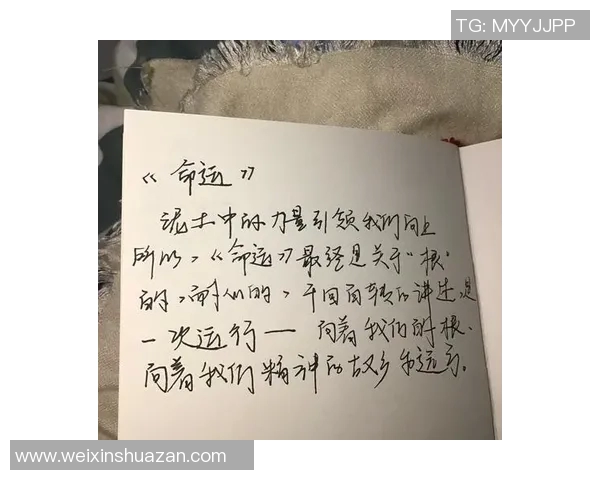 TG: MYYJJPP
《命运》
泥土中的力量引领我们向上
所以,《命运》最终是关于“根”
的,耐人的,千回百转的讲述,是
一次运行一 向着我们的根、
向着我们精神的故乡的运行。
www.weixinshuazan.com